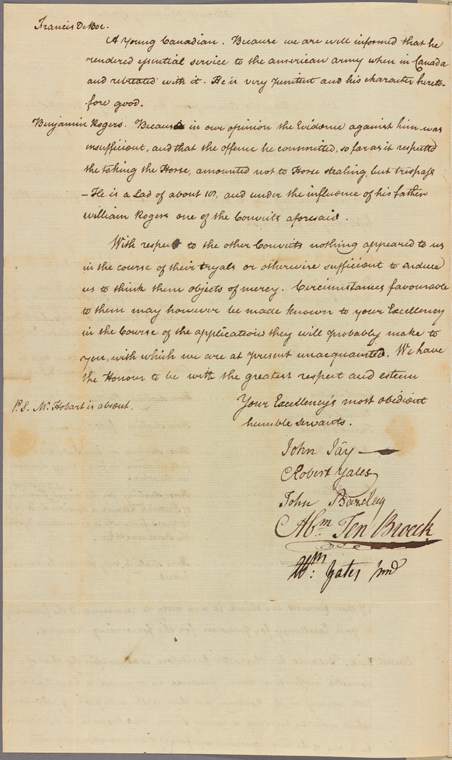 Francis DeRoe.
A Young Canadian. Because we are well informed that he
rendered essential service to the american army when in Canada
and retreated with it. He is very penitent and his character hereto-
fore good.
Benjamin Rogers. Because in our opinion the Evidence against him was
insufficient, and that the offence he committed, so far as it respected
the taking the Horse, amounted not to Horse stealing but trespass
– He is a Lad of about and under the influence of his father
William Rogers one of the Convicts aforesaid.
With respect to the other Convicts nothing appeared to us
in the course of their tryals or otherwise sufficient to induce
us to think them objects of mercy. Circumstances favourable
to them may however be made known to your Excellency
in the Course of the applications they will probably make to
you, with which we are at present unacquainted. We have
the Honour to be with the greatest respect and esteem
Your Excellency's most obedient
humble servants.
P.S. Mr. Hobart is absent.
John Jay
Robert Yates
John Barclay
Abm Ten Broeck
Abm: Yates Junr